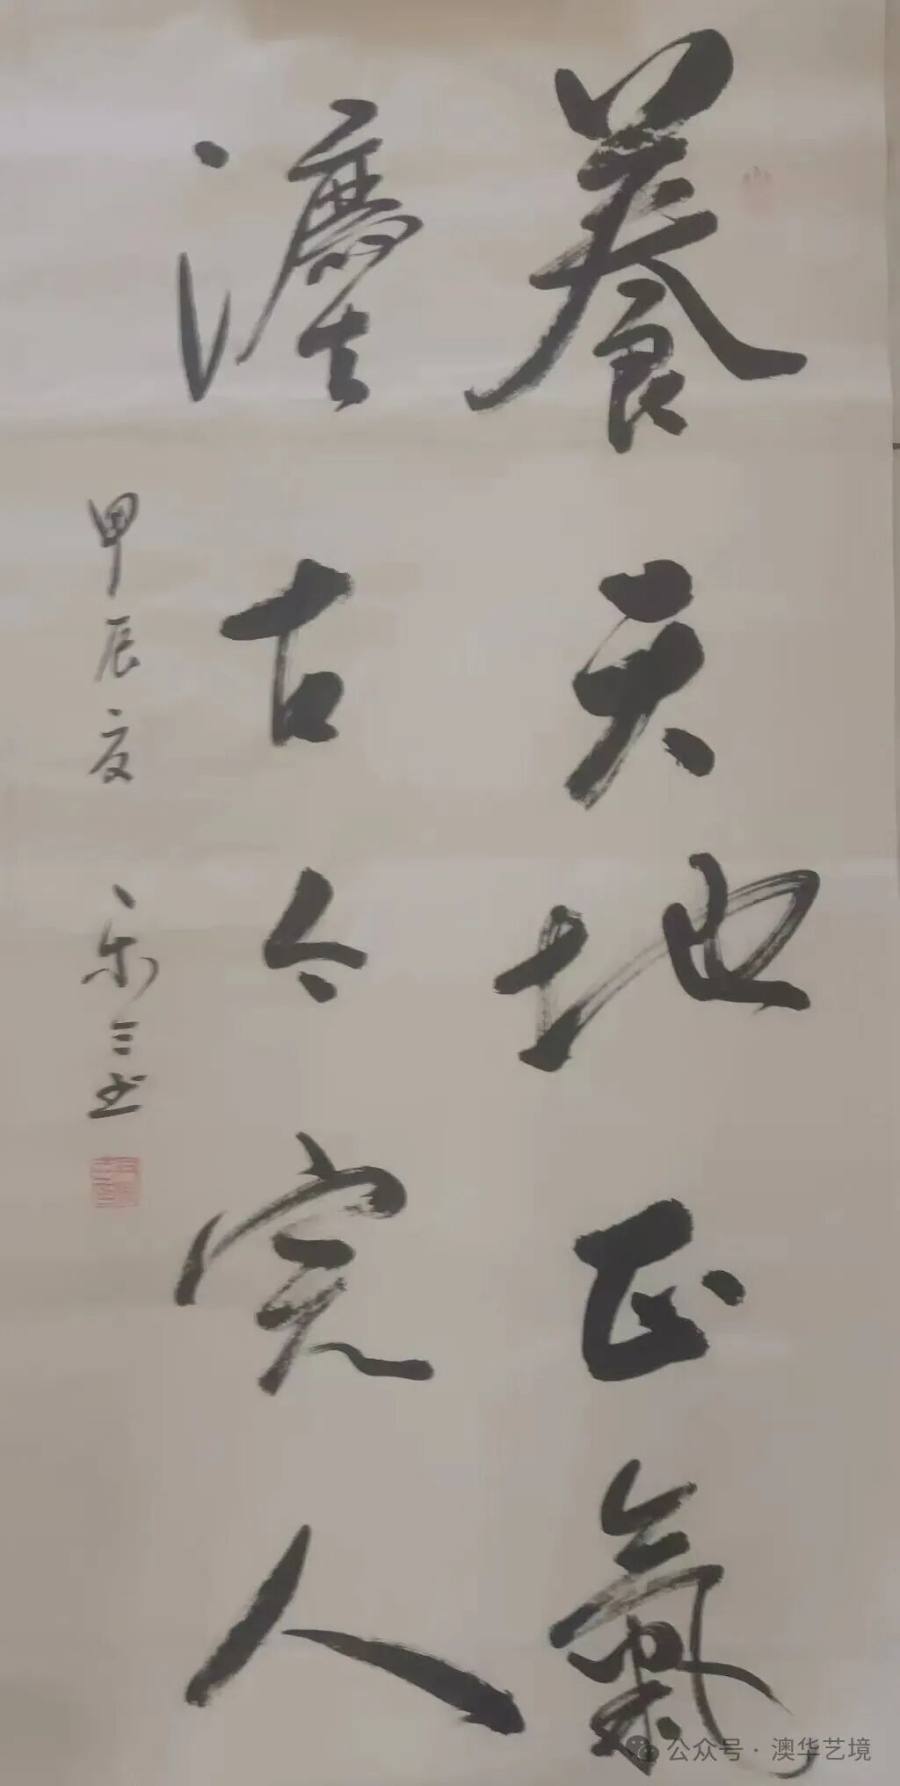 養天地正氣
灋古今完人
甲辰夏 乐三书
公众号·澳华艺境